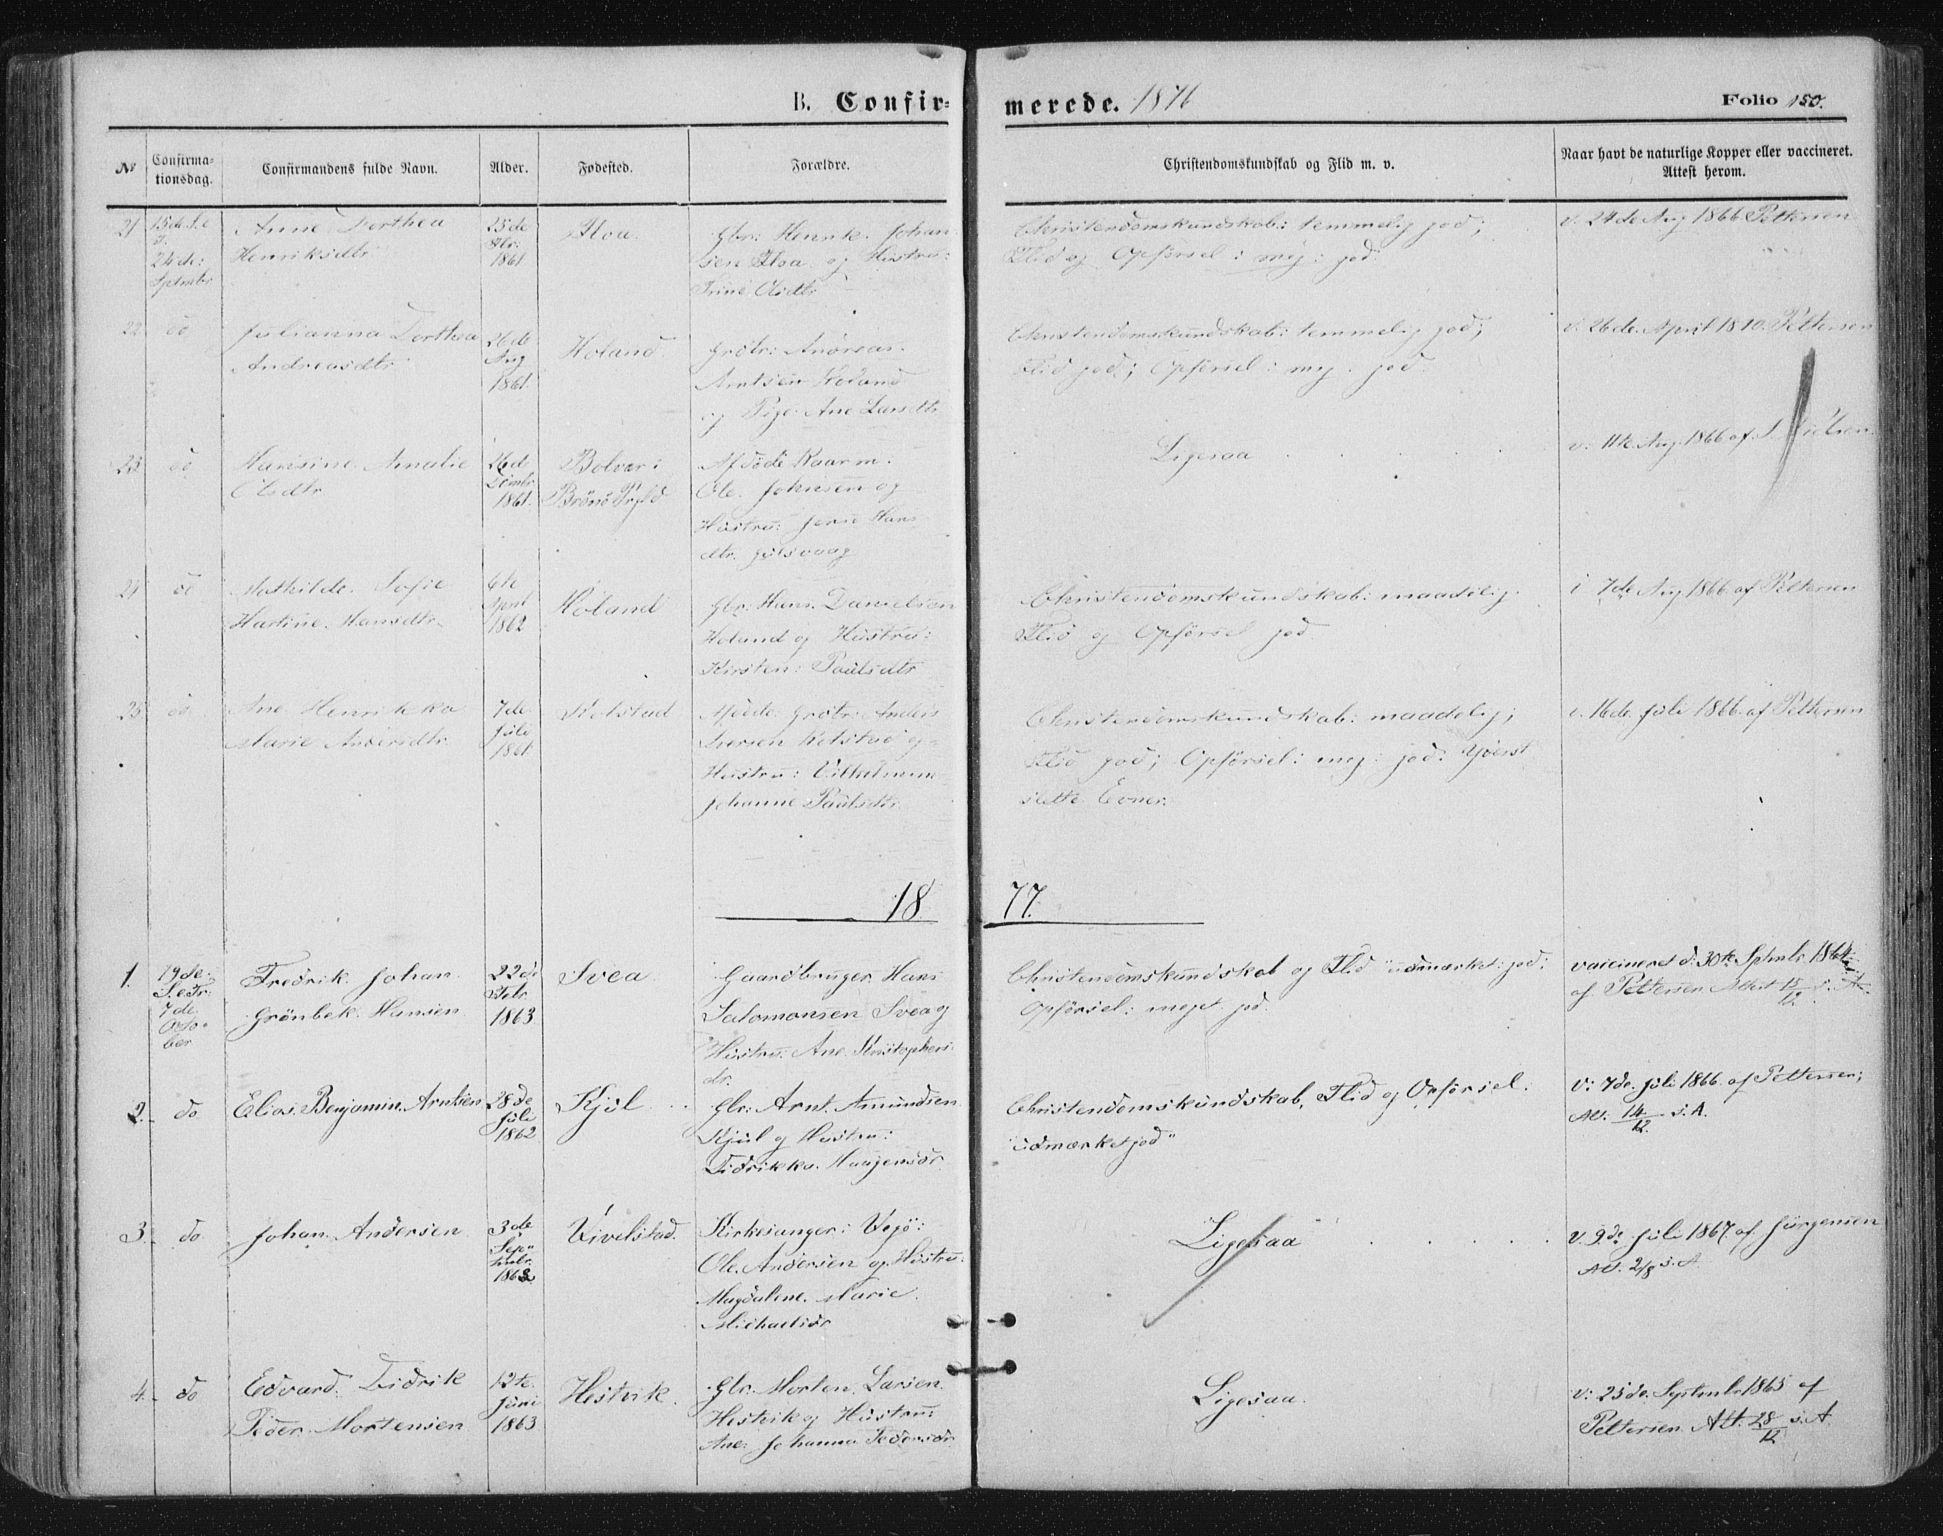 B. Confir=
merede. 1876
Folio 150.
No
Confirma-
tionsdag.
Confirmandens fulde Navn.
Alder.
Fødested.
Forældre.
Christendomskundskab og Flid m. v.
Naar havt de naturlige Kopper eller vaccineret.
Attest herom.
21
24de
Anne Dorthea
Henriksdtr
25de
1861
Gbr: Henrik Johan
sen og Hustru:
Trine Olsdtr
Christendomskundskab: temmelig god;
Flid og Opførsel: meg: god.
v. 24de Aug 1866 Pettersen
22
do
Julianna Dorthea
Andreasdtr
26de
Aug
1861.
Høland
Andreas
Arntsen Høland
og Pige Ane Larsdtr
Christendomskundskab: temmelig god;
Flid god; Opførsel: meg. god.
v. 26de April 1810. Pettersen
23
do
Hansine Amalie
Olsdtr
26de
1861.
Bolvær i
Brønø Prgld
Afdøde Kaarm.
Ole Johnsen og
Hustru: Hans
dtr.
Ligesaa
v. 11te Aug. 1866 af
24
do
Mathilde Sofie
Hartine Hansdtr.
6te
April
1862
Høland
Gbr: Hans Danielsen
Høland og Hustru:
Kirsten: Paulsdtr
Christendomskundskab: maadelig.
Flid og Opførsel god
7de Aug 1866 af Pettersen
25
do
Ane Henrikka
Marie Andersdtr
7de
Juli
1861
Kolstad
Afdøde Anders
Iversen Kolstad og
Hustru: Vilhelmine
Johanne Paulsdtr
Christendomskundskab: maadelig;
Flid god; Opførsel: meg: god. Yderst
slette Evner.
v. 16de Juli 1866. af Pettersen
18 77.
1.
19de
S.e.Tr:
7de
Octo-
ber
Fredrik Johan
Grønbek Hansen
22de
Febr
1863
Svea
Gaardbruger Hans
Salomonsen Svea og
Hustru: Ane Kristophers
dr.
Christendomskundskab og Flid "udmærket: god:
Opførsel: meget god.
vaccineret d: 30te Septmbr. 1864
af Pettersen Attest 15/12 s. A.
2.
do
Elias Benjamin Arntsen
28de
Juli
1862
Kjøl
Gbr: Arnt Amundsen
Kjøl og Hustru:
Didrikka Haagensdr.
Christendomskundskab, Flid og Opførsel.
"udmærket god"
v: 7de Juli 1866. af Pettersen;
Att. 14/12 s. A.
3.
do
Johan Andersen
3de
Sep-
tmbr.
Vivelstad.
Kirkesanger i Vega:
Ole Andersen og Hustru:
Magdalene Marie
Michaelsdr
Ligesaa
v. 9de Juli 1867. af Jürgensen
Att. 2/8 s. A
4.
do
Edvard Didrik
Peder Mortensen
12te
Juni
1863
Hestvik.
Gbr. Morten Larsen
Hestvik og Hustru:
Ane Johanna Pedersdr
Ligesaa.
v: 25de Septmbr 1865 af
Pettersen Att. 28/12 s. A